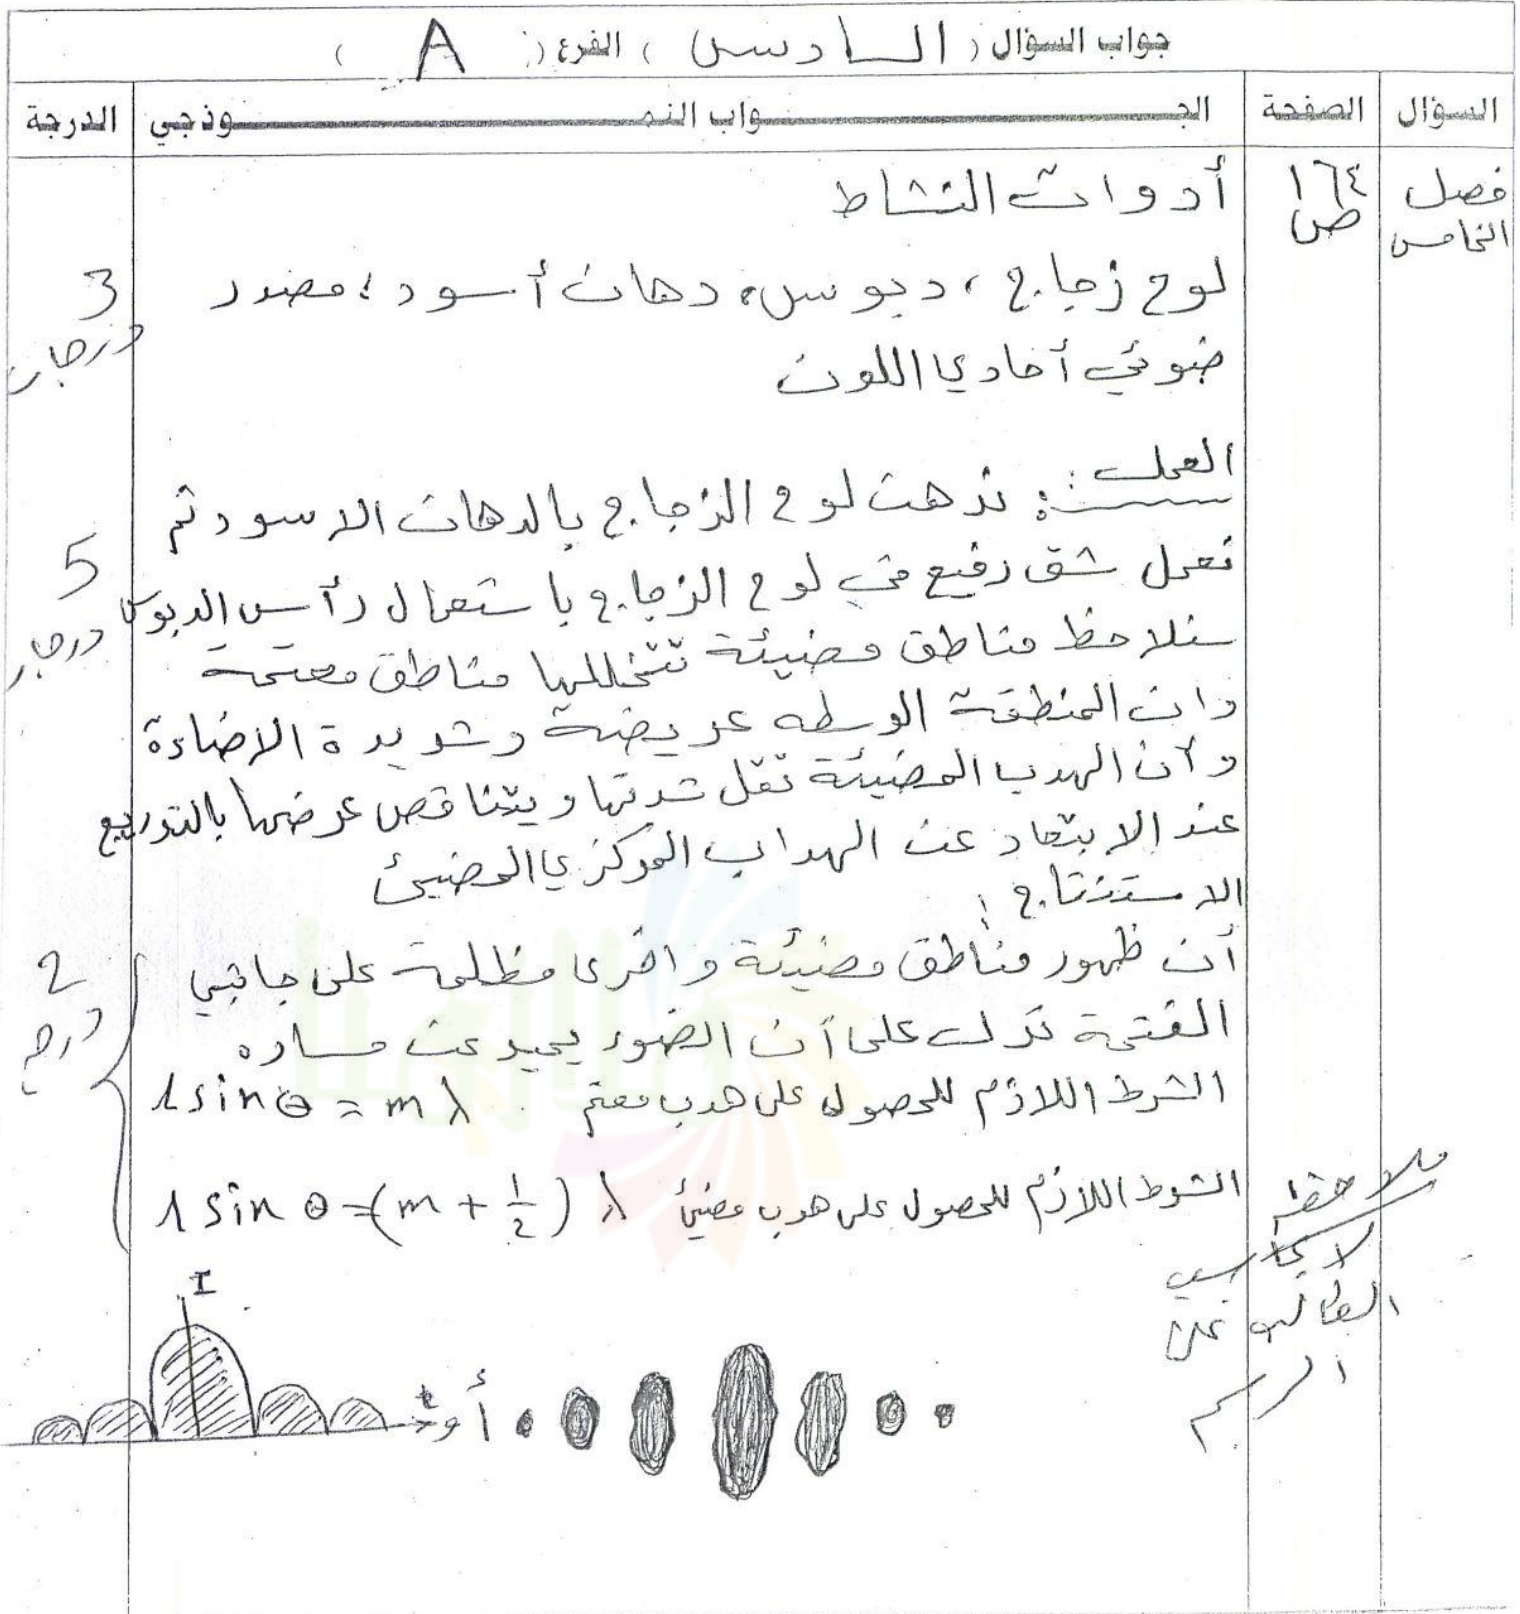 جواب السؤال ( السادس ) الفرع ( A )
السؤال الصفحة الجـواب النمـوذجي الدرجة
فصل الخامس
١٦٤ ص
أدوات النشاط
لوح زجاج ، دبوس، دهان أسود ، مصدر
ضوئي أحادي اللون
3 درجات
العمل : ندهن لوح الزجاج بالدهان الاسود ثم
نعمل شق رفيع في لوح الزجاج باستعمال رأس الدبوس
سنلاحظ مناطق مضيئة تتخللها مناطق معتمة
وان المنطقة الوسطه عريضة وشديدة الاضاءة
وأن الهدب المضيئة تقل شدتها ويتناقص عرضها بالتدريج
عند الابتعاد عن الهداب المركزي المضيئ
5 درجات
الاستنتاج :
أن ظهور مناطق مضيئة واخرى مظلمة على جانبي
الفتحة تدل على أن الضوء يحيد عن مساره
الشرط اللازم للحصول على هدب معتم l sin θ = m λ
الشرط اللازم للحصول على هدب مضيئ l sin θ = (m + 1/2) λ
2 درجة
ملاحظة
لا يحاسب
الطالب على
الرسم
I
أو